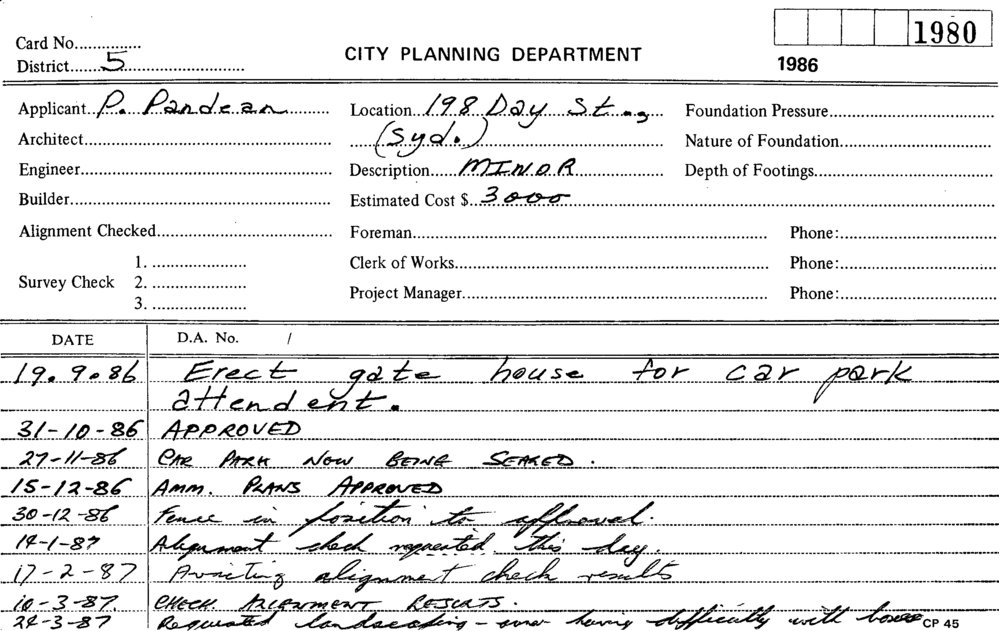 1980
Card No...............
CITY PLANNING DEPARTMENT
District 5
1986
Applicant P. Pandean Location 198 Day St., Foundation Pressure
Architect (Syd.) Nature of Foundation
Engineer Description MINOR Depth of Footings
Builder Estimated Cost $ 3000
Alignment Checked Foreman Phone:
1. Clerk of Works Phone:
Survey Check 2.
3. Project Manager Phone:
DATE D.A. No. /
19.9.86 Erect gate house for car park
attendent.
31-10-86 APPROVED
27-11-86 CAR PARK NOW BEING SEALED.
15-12-86 AMM. PLANS APPROVED
30-12-86 Fence in position to approval.
14-1-87 Alignment check requested this day.
17-2-87 Awaiting alignment check results
10-3-87. CHECK ALIGNMENT RESULTS.
24-3-87 Requested landscaping - owner having difficulty with CP 45